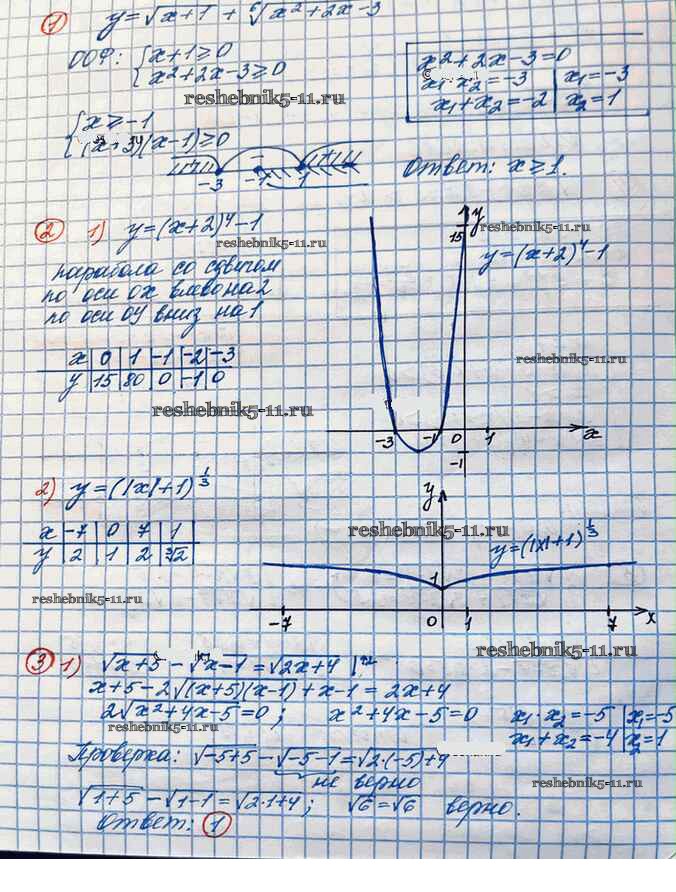 1 y = √x+1 + ⁶√x²+2x-3
ООФ: { x+1≥0
x²+2x-3≥0
x²+2x-3=0
x₁·x₂=-3 | x₁=-3
x₁+x₂=-2 | x₂=1
reshebnik5-11.ru
{ x≥-1
(x+3)(x-1)≥0
-3 -1 1
Ответ: x≥1.
2 1) y=(x+2)⁴-1
reshebnik5-11.ru
парабола со сдвигом
по оси ОХ влево на 2
по оси ОУ вниз на 1
x | 0 | 1 | -1 | -2 | -3
y | 15 | 80 | 0 | -1 | 0
reshebnik5-11.ru
y
15
reshebnik5-11.ru
y=(x+2)⁴-1
reshebnik5-11.ru
-3 -1 0 1 x
-1
2) y=(|x|+1)^1/3
x | -7 | 0 | 7 | 1
y | 2 | 1 | 2 | ³√2
reshebnik5-11.ru
y
reshebnik5-11.ru
y=(|x|+1)^1/3
1
-7 0 1 7 x
reshebnik5-11.ru
3 1) √x+5 - √x-1 = √2x+4 |²
x+5-2√(x+5)(x-1)+x-1=2x+4
2√x²+4x-5=0; x²+4x-5=0
x₁·x₂=-5 | x₁=-5
x₁+x₂=-4 | x₂=1
reshebnik5-11.ru
Проверка: √-5+5 - √-5-1 = √2·(-5)+4
не верно
reshebnik5-11.ru
√1+5 - √1-1 = √2·1+4; √6=√6 верно.
Ответ: 1